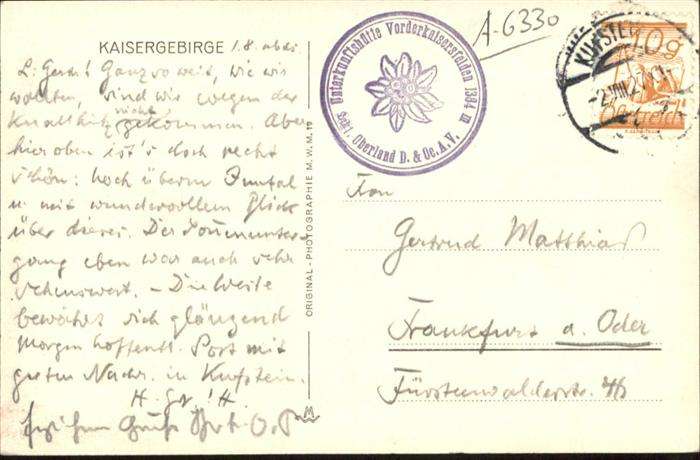 KAISERGEBIRGE 1.8. abds
L. Gerda! Ganz so weit, wie wir
wollten, sind wir wegen der
Knallhitz nicht gekommen. Aber
hier oben ist's doch recht
schön: hoch überm Inntal
u. mit wundervollem Blick
über dieses. Der Sonnenunter-
gang eben war auch sehr
sehenswert. – Die Weste
bewährt sich glänzend
Morgen hoffentl. Post mit
guten Nachr. in Kufstein.
H. Gr.
ORIGINAL-PHOTOGRAPHIE M.W.M. 19
Unterkunftshütte Vorderkaiserfelden 1384 m
Sekt. Oberland D. & Oe. A. V.
A-6330
KUFSTEIN
-2.VIII.27
Österreich
Frau
Gertrud Matthias
Frankfurt a. Oder
Fürstenwalderstr.